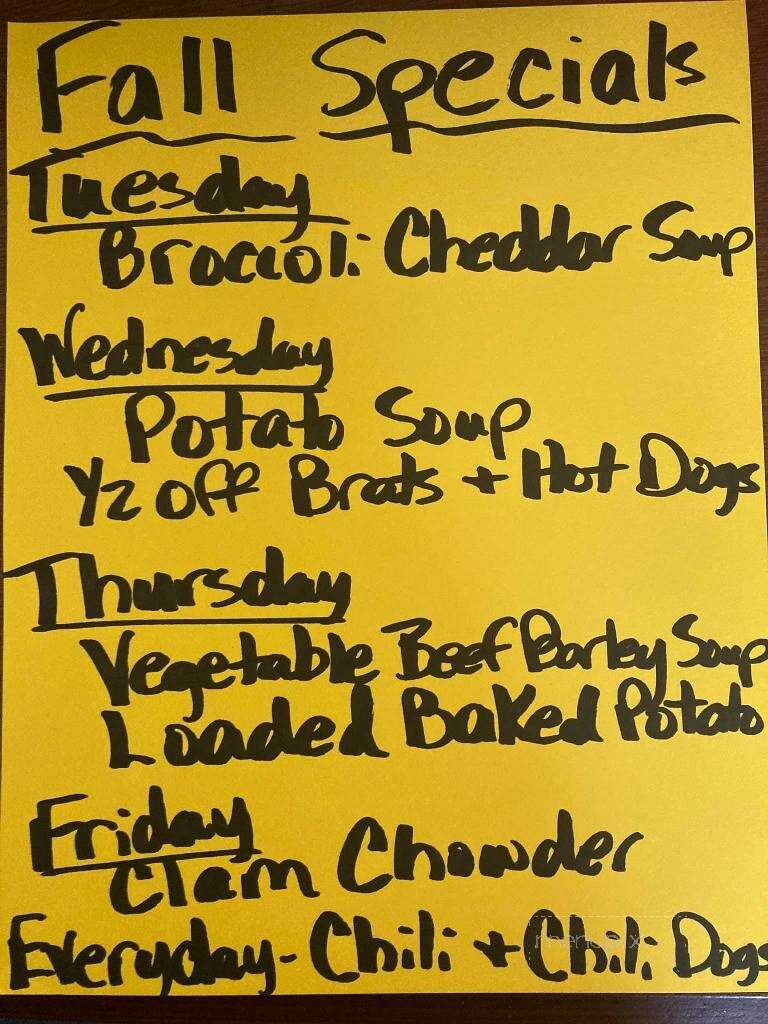 Fall Specials
Tuesday
Broccoli Cheddar Soup
Wednesday
Potato Soup
1/2 off Brats + Hot Dogs
Thursday
Vegetable Beef Barley Soup
Loaded Baked Potato
Friday
Clam Chowder
Everyday- Chili + Chili Dogs
menupix